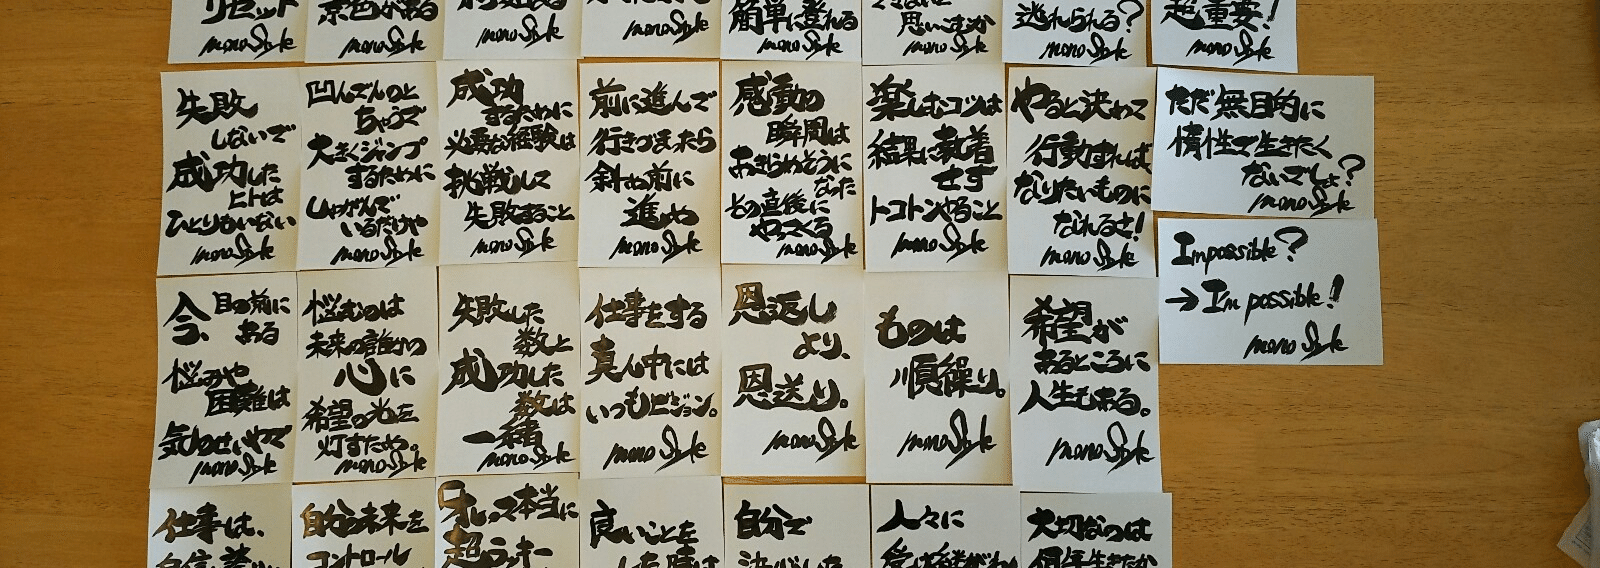 リセット
mono Style
景色がある
mono Style
mono Style
mono Style
簡単に登れる
mono Style
思いますか
mono Style
逃れられる?
mono Style
超重要!
mono Style
失敗
しないで
成功した
ヒトは
ひとりもいない
mono Style
凹んでんのと
ちゃうで
大きくジャンプ
するために
しゃがんで
いるだけや
mono Style
成功
するために
必要な経験は
挑戦して
失敗すること
mono Style
前に進んで
行きづまったら
斜め前に
進め
mono Style
感動の
瞬間は
あきらめそうに
なった
その直後に
やってくる
mono Style
楽しむコツは
結果に執着
せず
トコトンやること
mono Style
やると決めて
行動すれば
なりたいものに
なれるさ!
mono Style
ただ無目的に
惰性で生きたく
ないでしょ?
mono Style
Impossible?
→I'm possible!
mono Style
今、目の前に
ある
悩みや
困難は
気のせいやで
mono Style
悩むのは
未来の誰かの
心に
希望の光を
灯すため。
mono Style
失敗した
数と
成功した
数は
一緒
mono Style
仕事をする
真ん中には
いつもビジョン。
mono Style
恩返し
より、
恩送り。
mono Style
ものは
順繰り。
mono Style
希望が
あるところに
人生もある。
mono Style
仕事は、
自分の未来を
コントロール
オレって本当に
超ラッキー
良いことを
した時は
自分で
人々に
大切なのは
何年生きたか